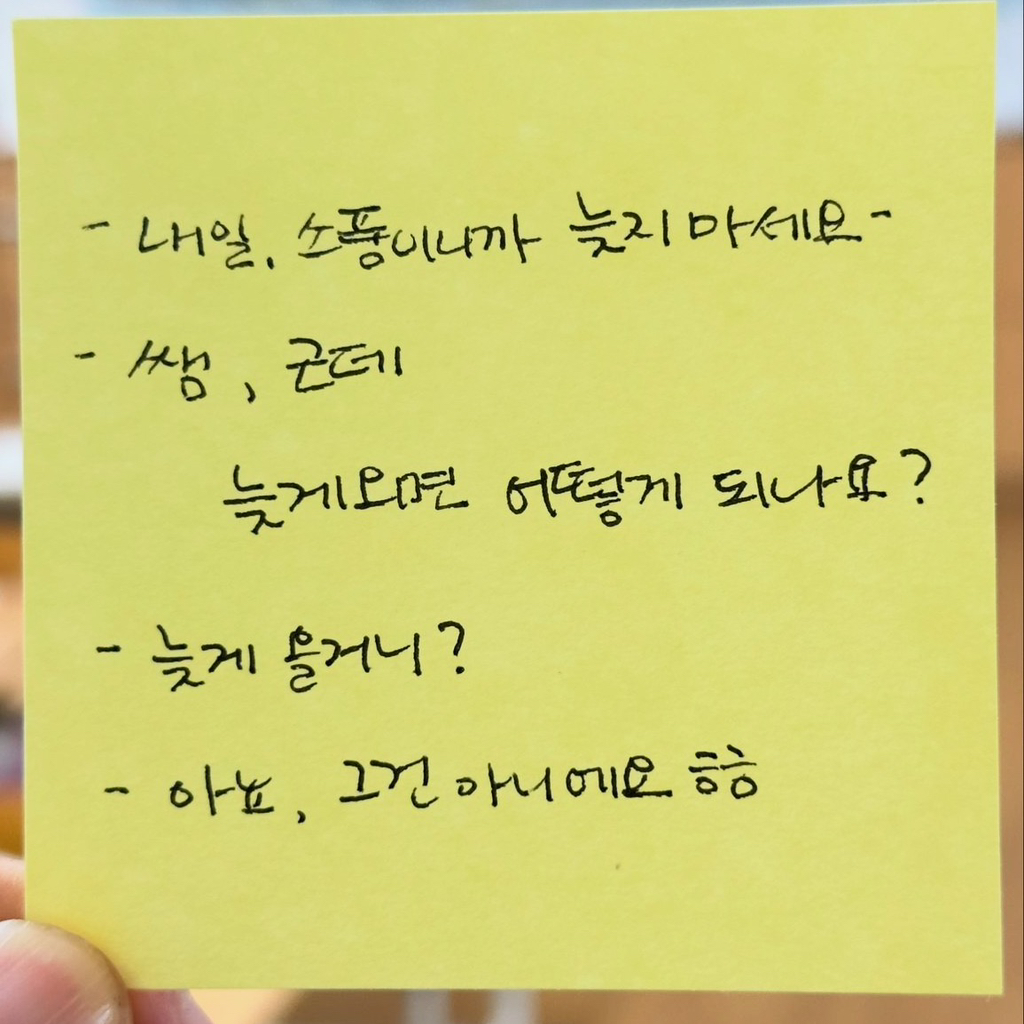 - 내일, 소풍이니까 늦지 마세요-
- 쌤, 근데
늦게오면 어떻게 되나요?
- 늦게 올거니?
- 아뇨, 그건 아니에요 흐흐